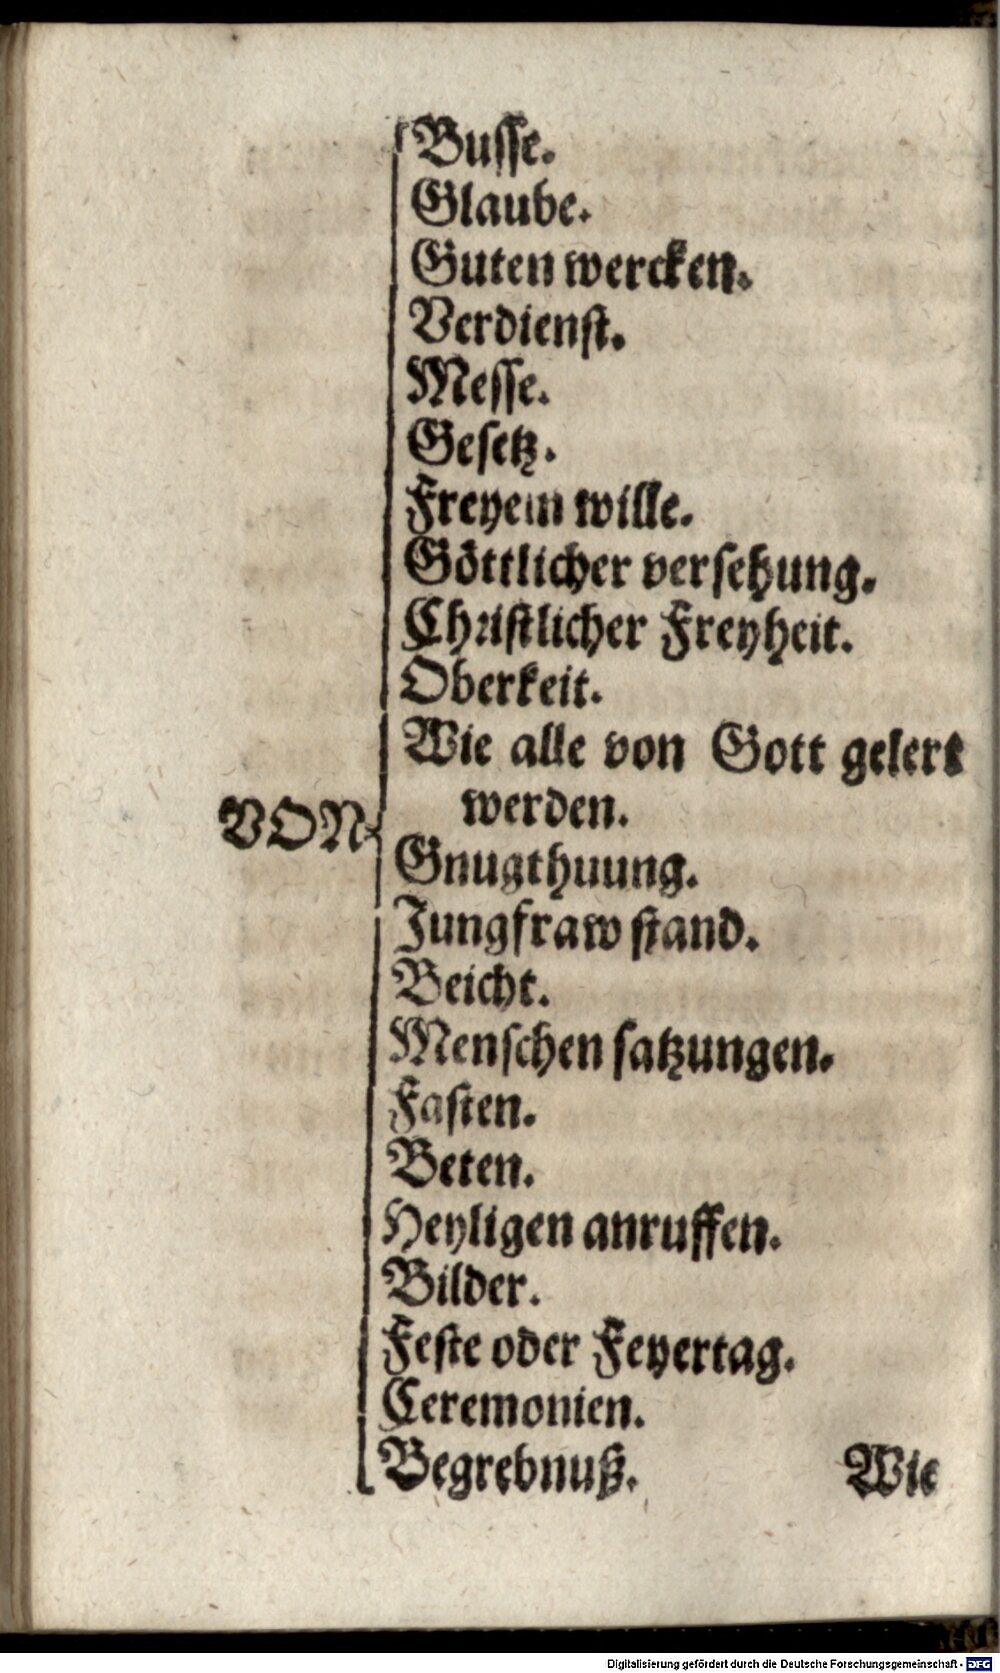 Busse.
Glaube.
Guten wercken.
Verdienst.
Messe.
Gesetz.
Freyem wille.
Göttlicher versehung.
Christlicher Freyheit.
Oberkeit.
Wie alle von Gott gelert
werden.
VON
Gnugthuung.
Jungfraw stand.
Beicht.
Menschen satzungen.
Fasten.
Beten.
Heyligen anruffen.
Bilder.
Feste oder Feyertag.
Ceremonien.
Begrebnuß.
Wie
Digitalisierung gefördert durch die Deutsche Forschungsgemeinschaft - DFG